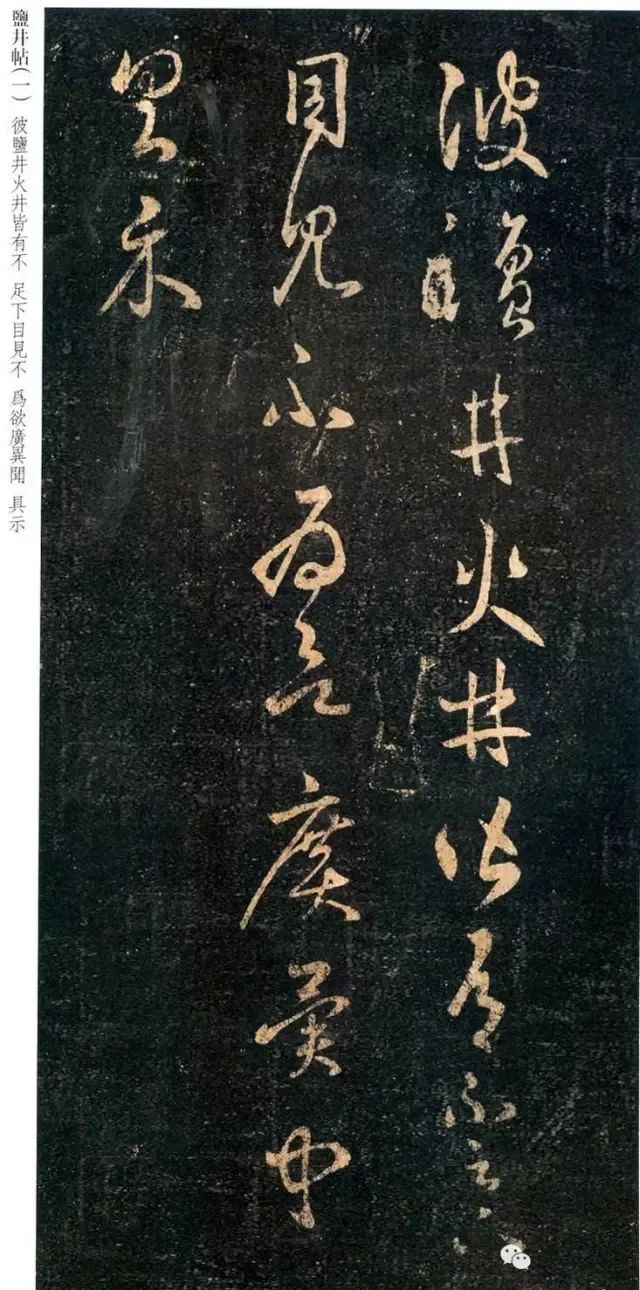 彼鹽井火井皆有不足下
目見不為欲廣異聞
具示
鹽井帖(一) 彼鹽井火井皆有不 足下目見不 爲欲廣異聞 具示